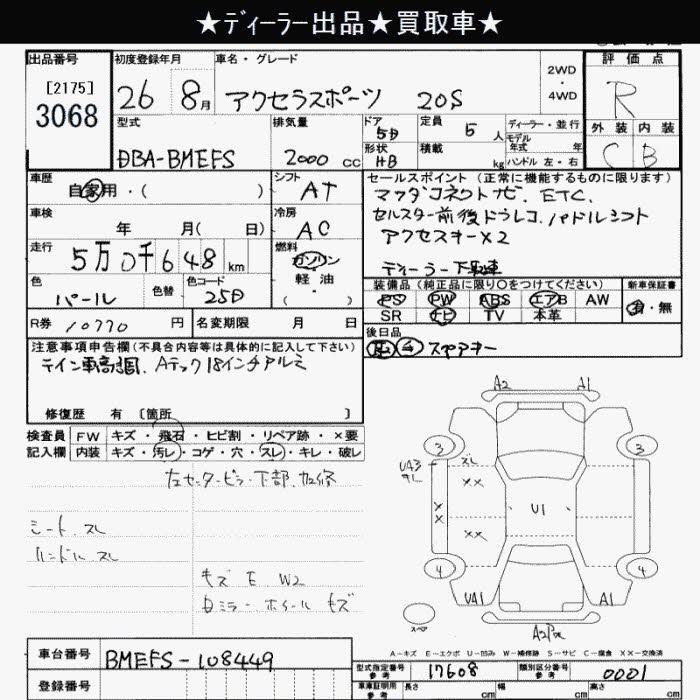 ★ディーラー出品★買取車★
出品番号 初度登録年月 車名・グレード 2WD・4WD 評価点
[2175]
3068
26 8月 アクセラスポーツ 20S R
型式 排気量 ドア 定員 ディーラー・並行 外装 内装
5D 5人 モデル年式 年
DBA-BMEFS 2000cc 形状 積載 kg ハンドル 左・右 C B
HB
車歴 シフト セールスポイント(正常に機能するものに限ります)
自家用・( ) AT マツダコネクトナビ、ETC、
車検 冷房 セルスター前後ドラレコ、パドルシフト
年 月( 日) AC アクセスキー×2
走行 燃料
5万0千648km ガソリン ディーラー下取車
色 色替 色コード 軽油 装備品(純正品に限り○をつけてください) 新車保証書
パール 25D ・( ) PS PW ABS エアB AW 有・無
SR ナビ TV 本革
R券 10770円 名変期限 月 日 後日品
注意事項申告欄(不具合内容等は具体的に記入して下さい) スペアキー
テイン車高調、Aテック18インチアルミ
修復歴 有〔箇所 〕
検査員 FW キズ・飛石・ヒビ割・リペア跡・×要
記入欄 内装 キズ・汚レ・コゲ・穴・スレ・キレ・破レ
左センターピラー下部、加修
シート、スレ
ハンドル スレ
キズ E W2
Dミラー ホイール キズ
A2 A1
3 3
UA3 ズレ
××
××
××
U1
4 4
UA1 A1
スペア
A-キズ E-エクボ U-凹み W-補修跡 S-サビ C-腐食 ××-交換済
車台番号 BMEFS-108449
型式指定番号 参考 17608 類別区分番号 参考 0001
登録番号 車庫証明用 参考 長さ cm 幅 cm 高さ cm